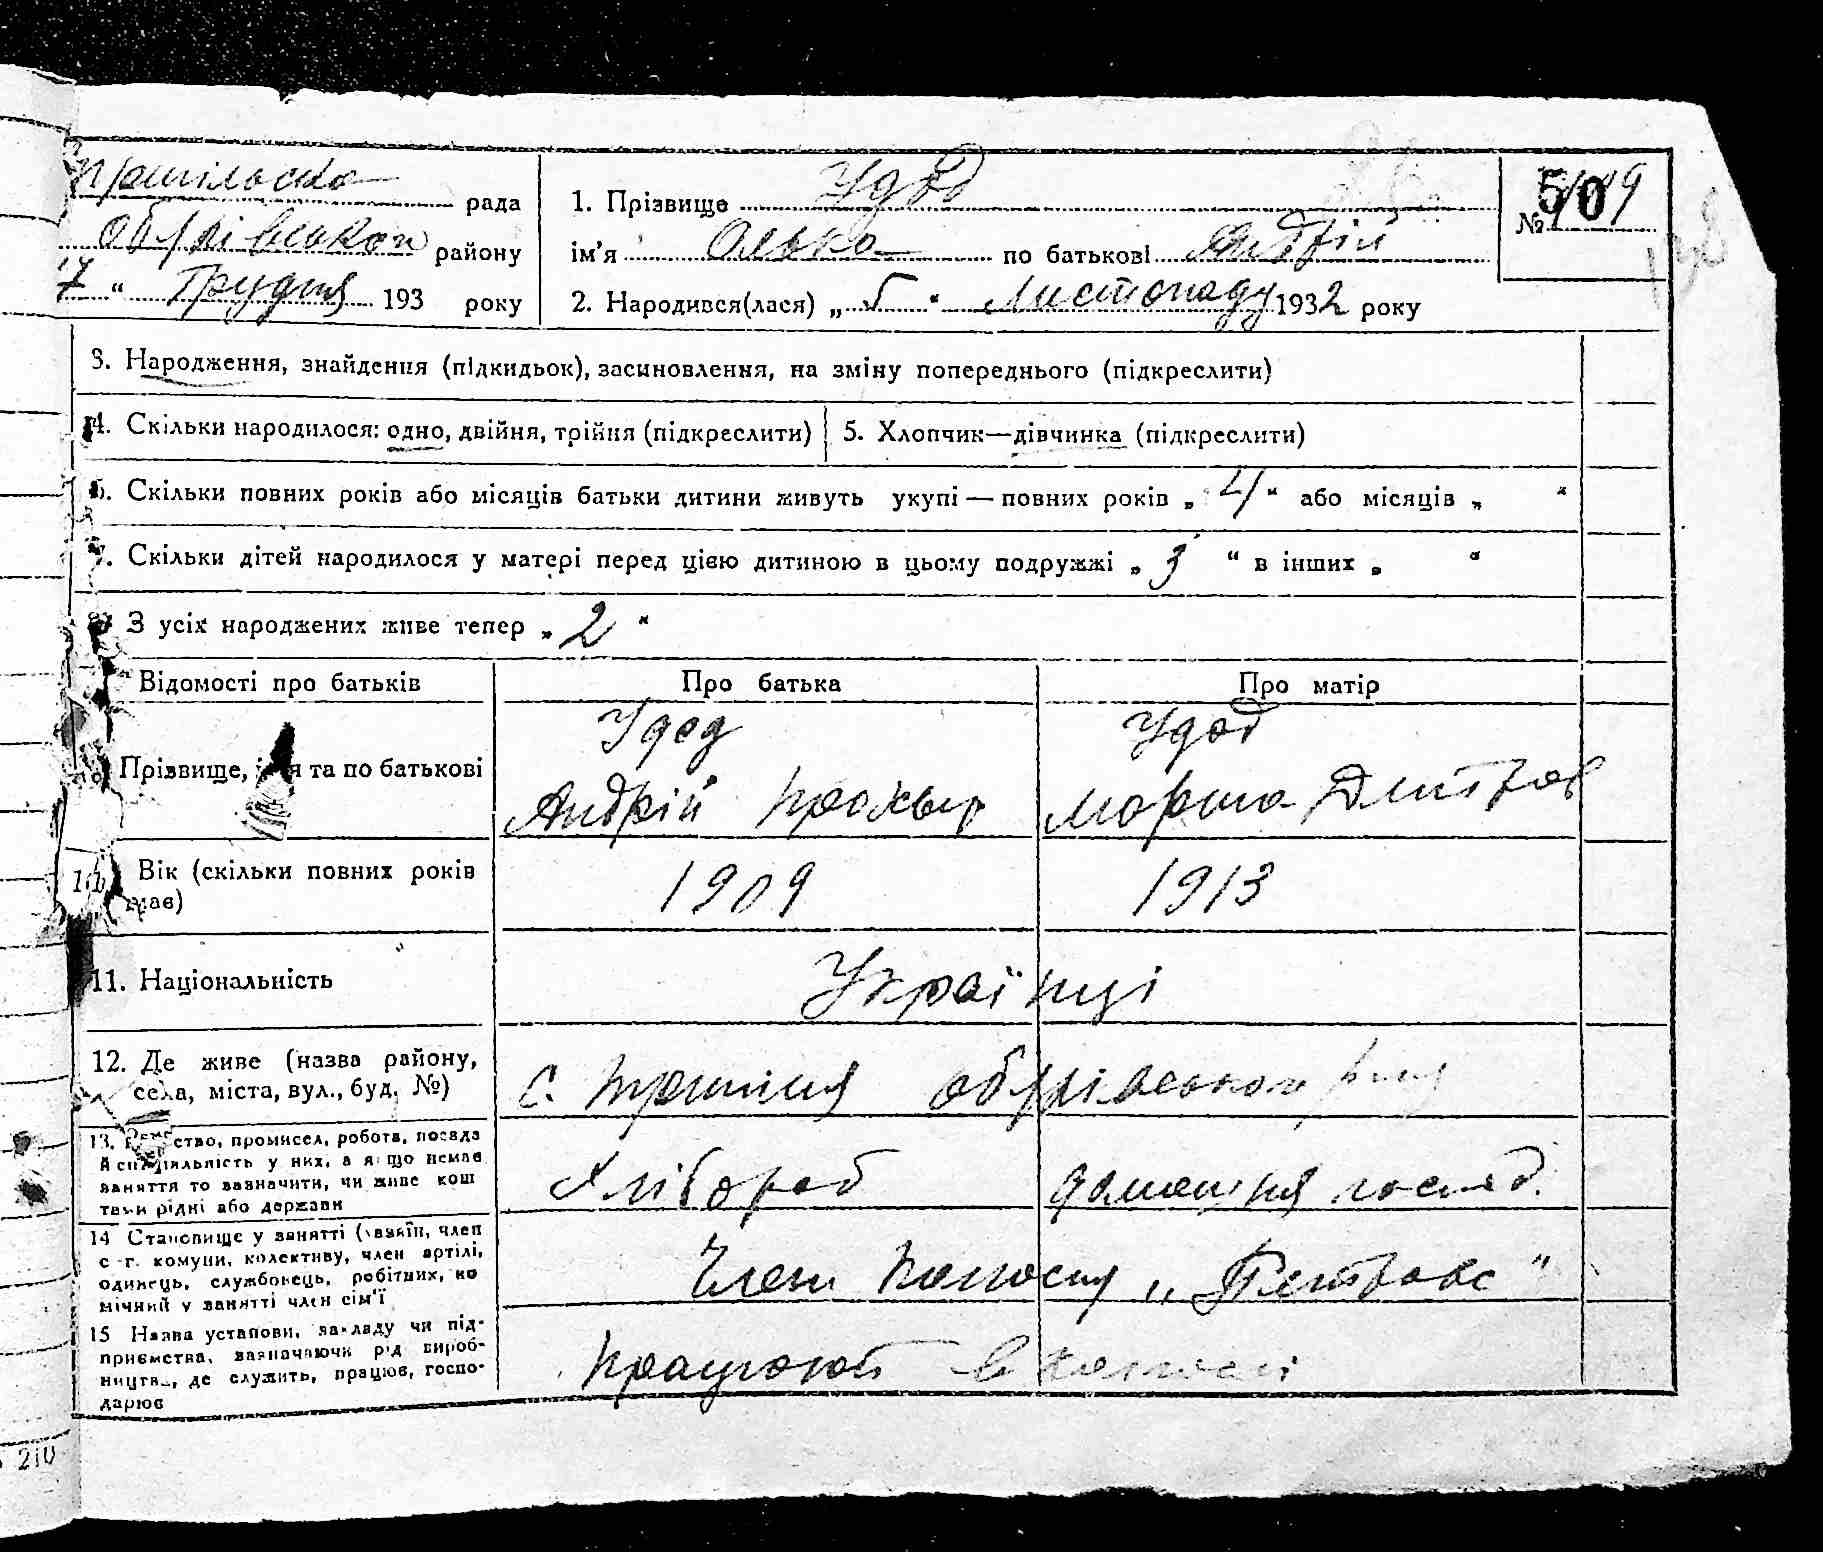 рада
1. Прізвище Удод
№ 509
району
ім'я Олька по батькові Андрій
"7" Грудня 193 року
2. Народився(лася) „5" Листопаду 1932 року
3. Народження, знайдення (підкидьок), засиновлення, на зміну попереднього (підкреслити)
4. Скільки народилося: одно, двійня, трійня (підкреслити)
5. Хлопчик—дівчинка (підкреслити)
6. Скільки повних років або місяців батьки дитини живуть укупі — повних років „4" або місяців „ "
7. Скільки дітей народилося у матері перед цією дитиною в цьому подружжі „3" в інших „ "
8. З усіх народжених живе тепер „2"
Відомості про батьків
Про батька
Про матір
Прізвище, ім'я та по батькові
Удод
Андрій
Удод
10. Вік (скільки повних років має)
1909
1913
11. Національність
Українці
12. Де живе (назва району,
села, міста, вул., буд. №)
с.
13. ство, промисел, робота, посада
й спеціяльність у них, а якщо немає
заняття то зазначити, чи живе кош
тами рідні або держави
Хлібороб
домашня господ.
14 Становище у занятті (хазяїн, член
с-г. комуни, колективу, член артілі,
одинець, службовець, робітник, по
мічний у занятті член сім'ї
Член
15 Назва установи, закладу чи під-
приємства, зазначаючи рід вироб-
ництва, де служить, працює, госпо-
дарює
Працюють в колгоспі
210